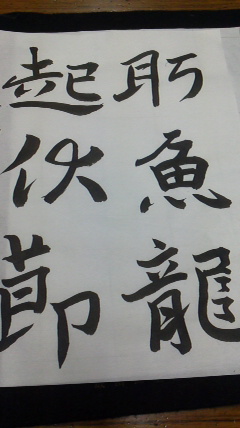 魚龍
起伏節